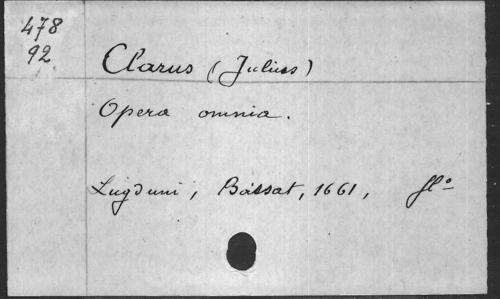 478
92
Clarus (Julius)
Opera omnia.
Lugduni, Bassat, 1661, fl°